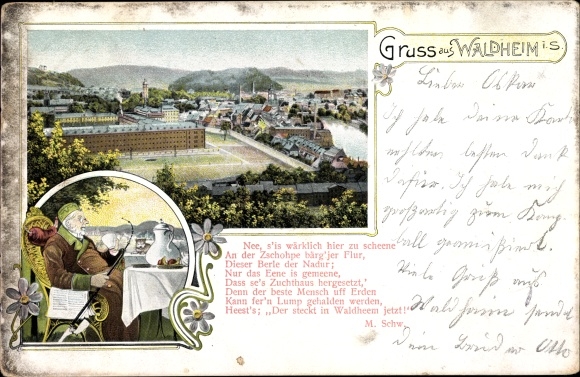 Gruss aus WALDHEIM i. S.
Lieber Oskar
Ich habe deine Karte
erhalten besten Dank
dafür. Ich habe mich
großartig zum
ball gramisirt.
Viele Grüß aus
Waldheim sendet
dein Bruder Otto
Nee, s'is wärklich hier zu scheene
An der Zschohpe bärg'jer Flur,
Dieser Berle der Nadur;
Nur das Eene is gemeene,
Dass se's Zuchthaus hergesetzt,'
Denn der beste Mensch uff Erden
Kann fer'n Lump gehalden werden,
Heest's; „Der steckt in Waldheem jetzt!"
M. Schw.